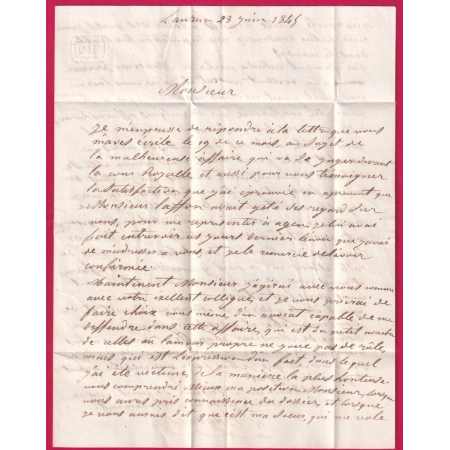 Lauzun 23 juin 1845
Monsieur
Je m'empresse de répondre à la lettre que vous
m'avés écrite le 19 de ce mois, au sujet de
la malheureuse affaire, qui va se juger devant
la cour Royalle et aussi pour vous témoigner
la satisfaction que j'ai éprouvée en apprenant que
Monsieur laffon avait jeté ses regard sur
vous, pour me représenter à agen, je lui avai
fait entrevoir ces jours derniers le désir que j'avai
de m'adresser à vous, et je le remercie de l'avoir
confirmée.
Maintenent Monsieur j'agirai avec vous comme
avec votre exellent collègue, et je vous prierai de
faire choix vous même d'un avocat capable de me
deffendre dans cette affaire, qui est du petit nombre
de celles ou l'amour propre ne joue pas de rôle,
mais qui est l'expression d'un fait, dans lequel
j'ai été victime, de la manière la plus honteuse
vous comprendré mieux ma position Monsieur, lorsque
vous aurés pris connaissance du dossier, et lorsque
je vous aurais dit que c'est ma sœur, qui me vole